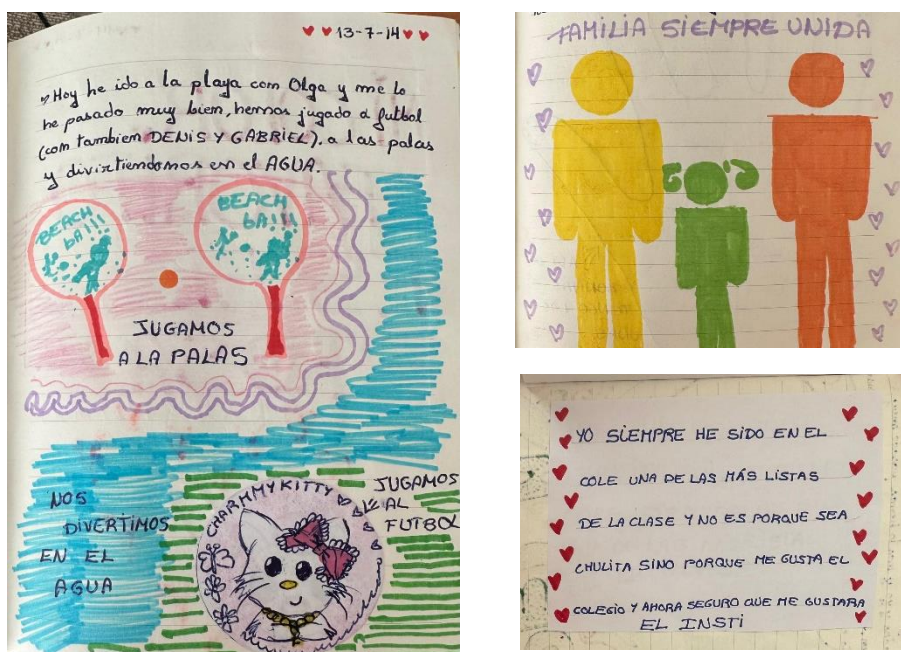 13-7-14
Hoy he ido a la playa con Olga y me lo
he pasado muy bien, hemos jugado a futbol
(con tambien DENIS Y GABRIEL), a las palas
y divirtiendonos en el AGUA.
BEACH
bA!!!
BEACH
bA!!!
JUGAMOS
A LA PALAS
NOS
DIVERTIMOS
EN EL
AGUA
CHARMMYKITTY
JUGAMOS
AL
FUTBOL
FAMILIA SIEMPRE UNIDA
YO SIEMPRE HE SIDO EN EL
COLE UNA DE LAS MÁS LISTAS
DE LA CLASE Y NO ES PORQUE SEA
CHULITA SINO PORQUE ME GUSTA EL
COLEGIO Y AHORA SEGURO QUE ME GUSTARA
EL INSTI